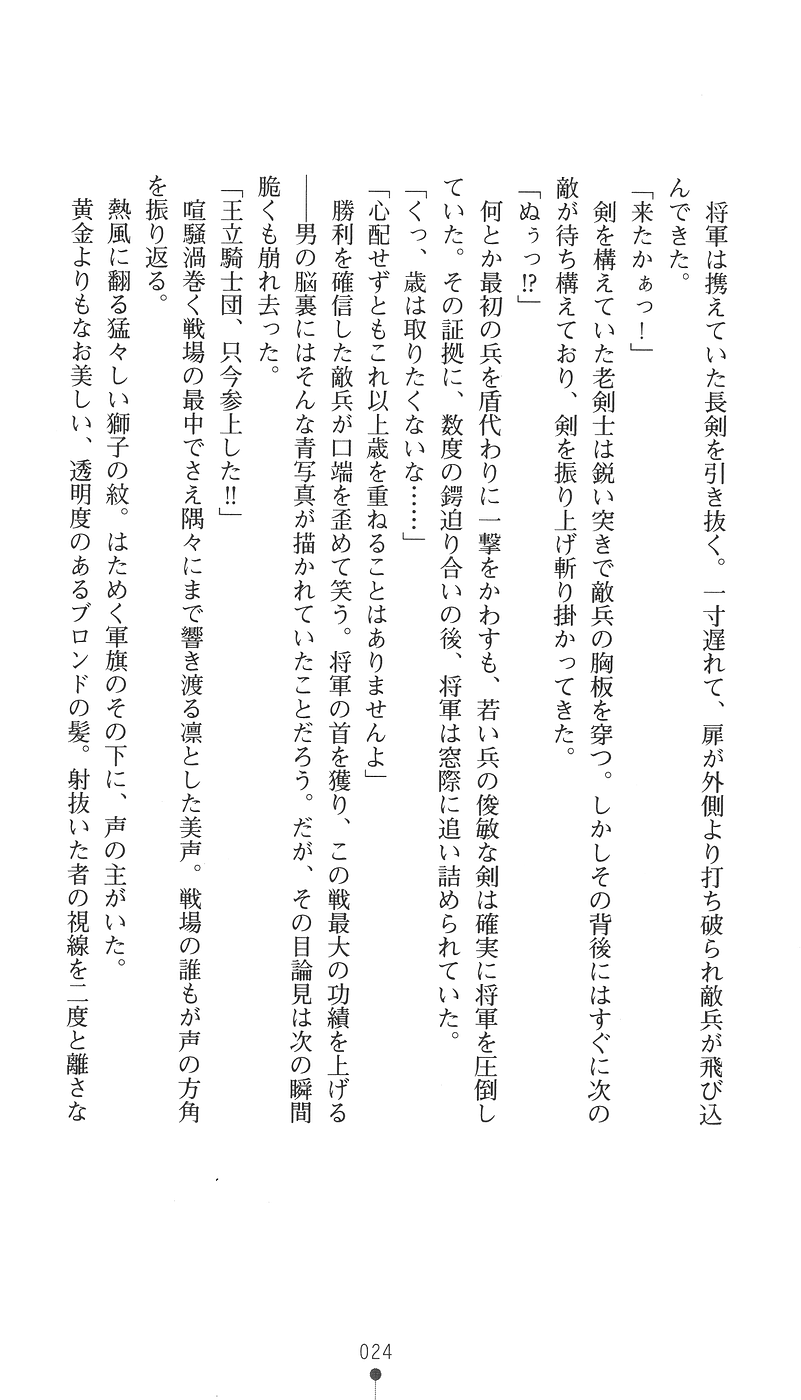 将軍は携えていた長剣を引き抜く。一寸遅れて、扉が外側より打ち破られ敵兵が飛び込
んできた。
「来たかぁっ！」
　剣を構えていた老剣士は鋭い突きで敵兵の胸板を穿つ。しかしその背後にはすぐに次の
敵が待ち構えており、剣を振り上げ斬り掛かってきた。
「ぬぅっ!?」
　何とか最初の兵を盾代わりに一撃をかわすも、若い兵の俊敏な剣は確実に将軍を圧倒し
ていた。その証拠に、数度の鍔迫り合いの後、将軍は窓際に追い詰められていた。
「くっ、歳は取りたくないな……」
「心配せずともこれ以上歳を重ねることはありませんよ」
　勝利を確信した敵兵が口端を歪めて笑う。将軍の首を獲り、この戦最大の功績を上げる
――男の脳裏にはそんな青写真が描かれていたことだろう。だが、その目論見は次の瞬間
脆くも崩れ去った。
「王立騎士団、只今参上した!!」
　喧騒渦巻く戦場の最中でさえ隅々にまで響き渡る凛とした美声。戦場の誰もが声の方角
を振り返る。
　熱風に翻る猛々しい獅子の紋。はためく軍旗のその下に、声の主がいた。
　黄金よりもなお美しい、透明度のあるブロンドの髪。射抜いた者の視線を二度と離さな
024